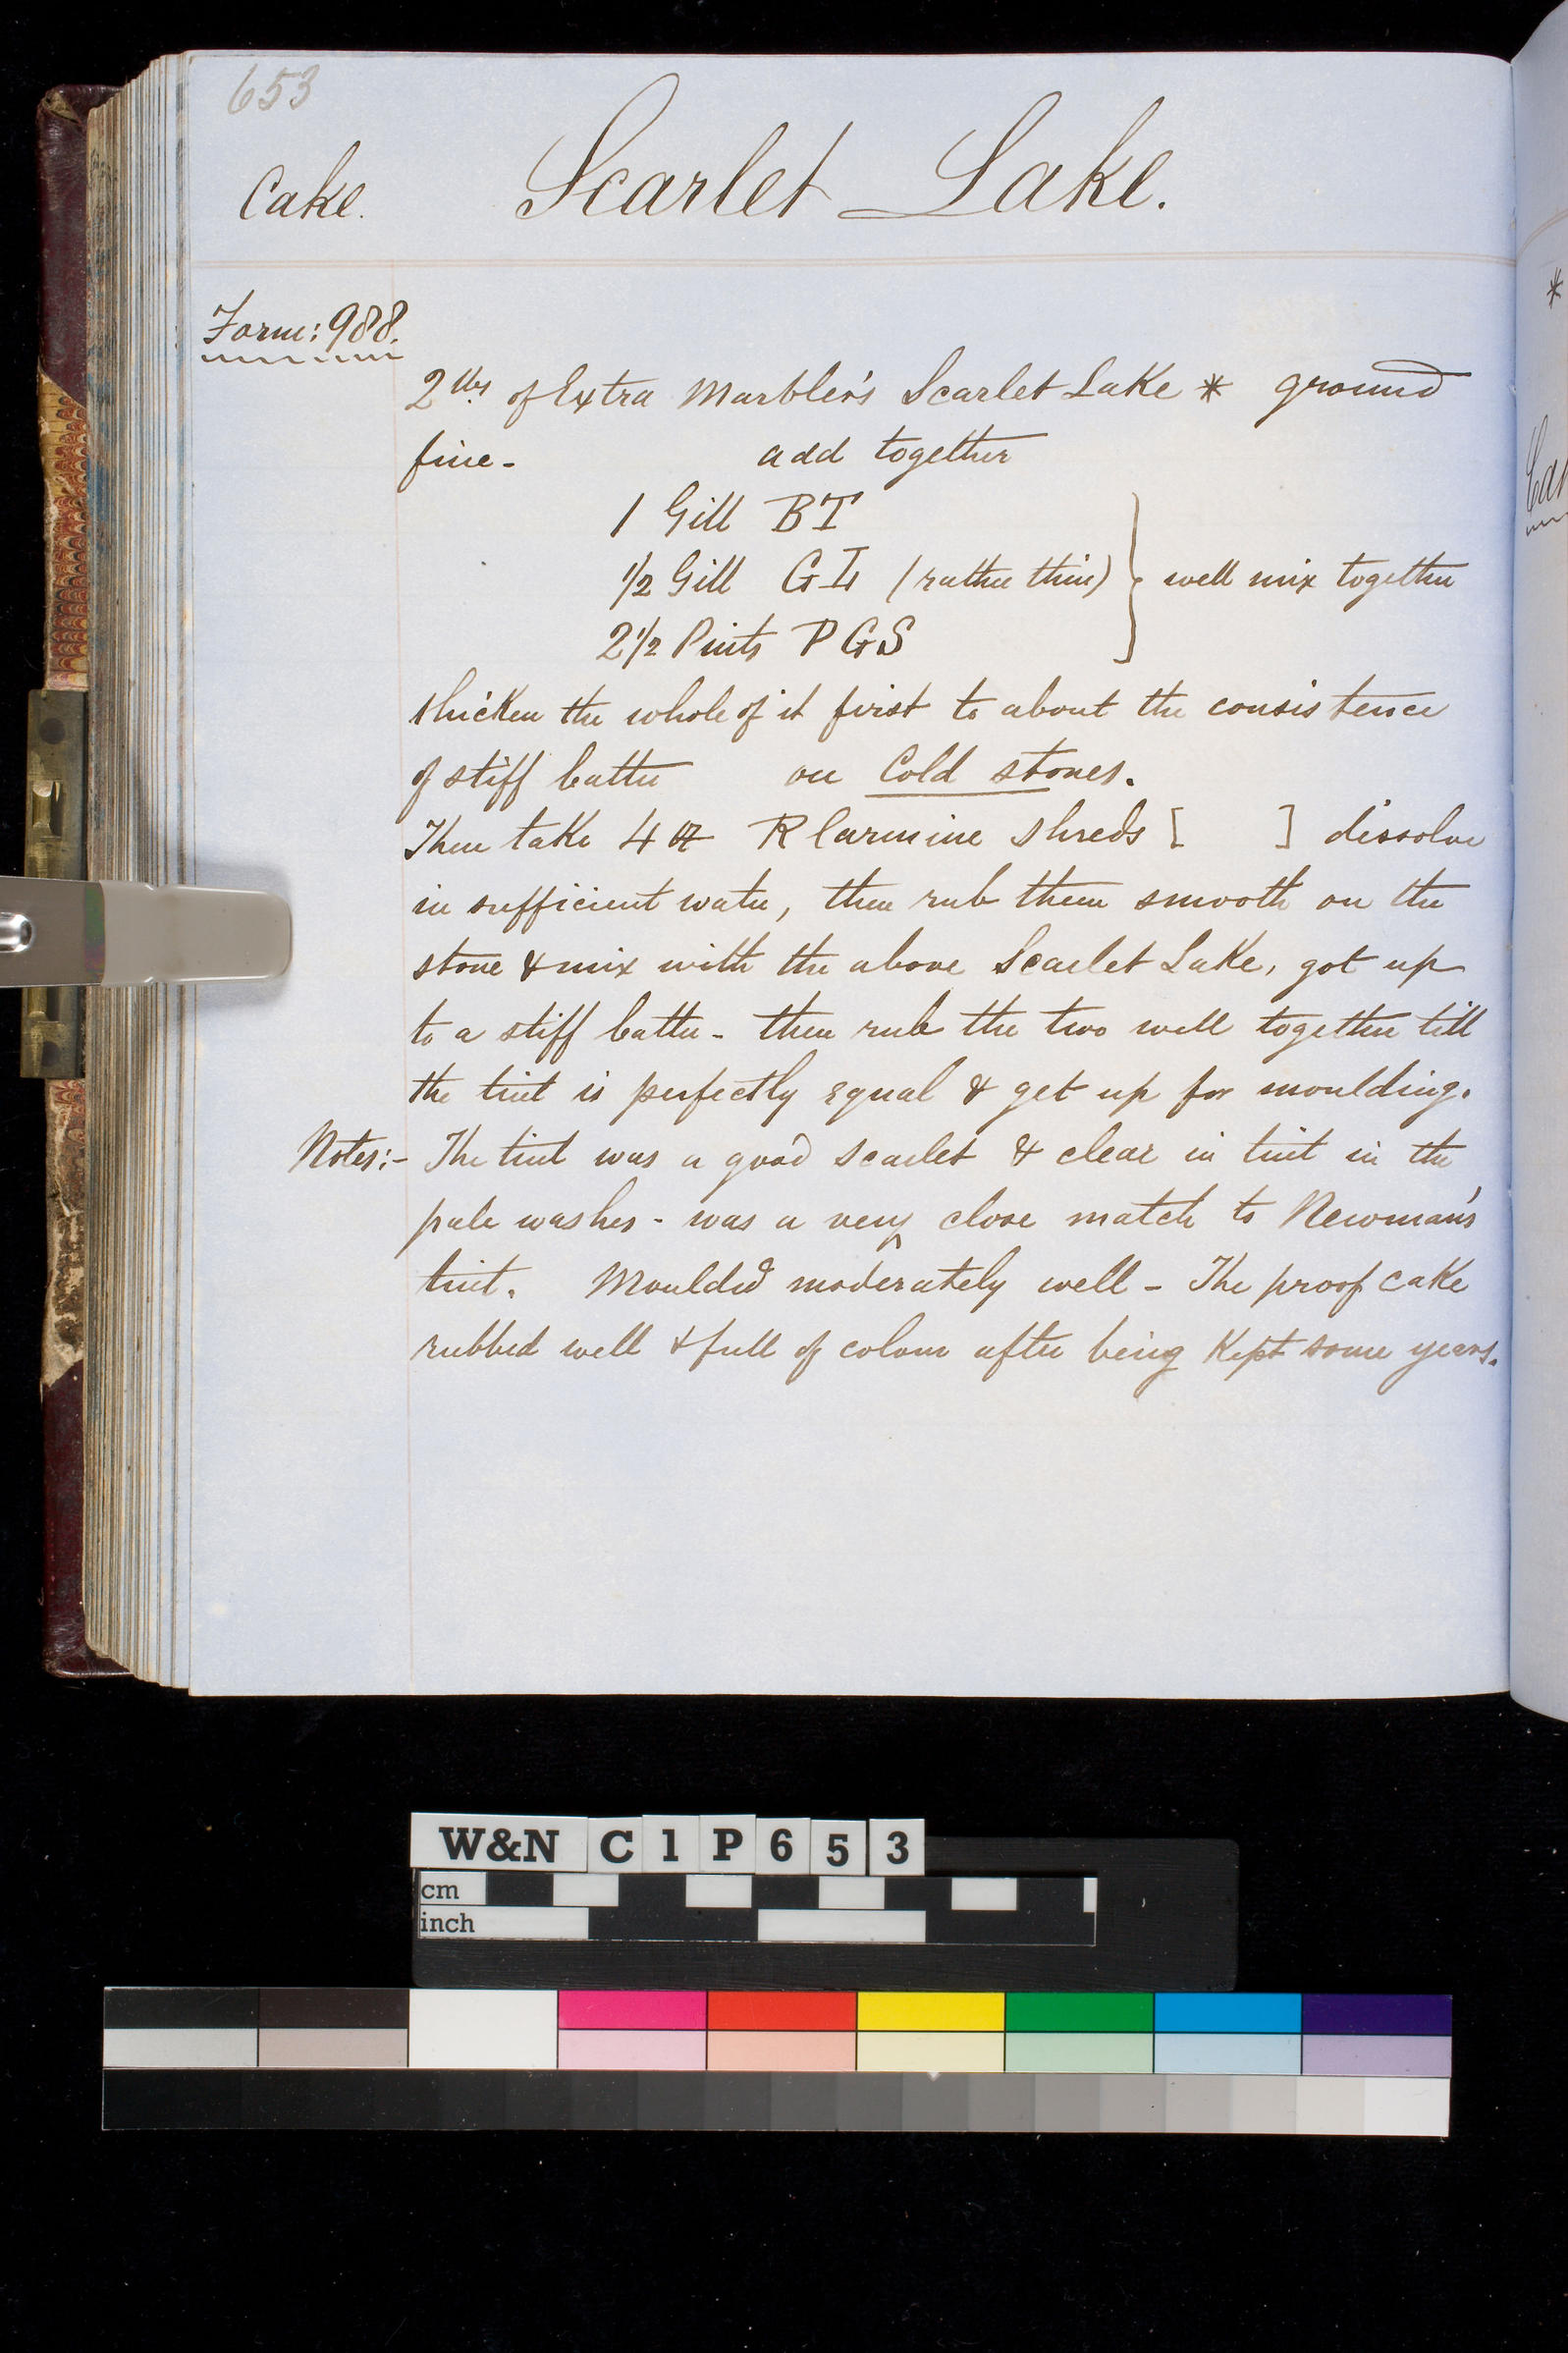 653
Cake. Scarlet Lake.
Form: 988.
2 lbs of Extra Marbler's Scarlet Lake * ground
fine - add together
1 Gill BT
1/2 Gill GL (rather thin) } well mix together
2 1/2 Pints PGS
thicken the whole of it first to about the consistence
of stiff batter on Cold stones.
Then take 4 oz R Carmine shreds [ ] dissolve
in sufficient water, then rub them smooth on the
stone & mix with the above Scarlet Lake, got up
to a stiff batter - then rub the two well together till
the tint is perfectly equal & get up for moulding.
Notes:- The tint was a good scarlet & clear in tint in the
pale washes - was a very close match to Newman's
tint. Moulded moderately well - The proof cake
rubbed well & full of colour after being kept some years.
*
W&N C1P653
cm
inch